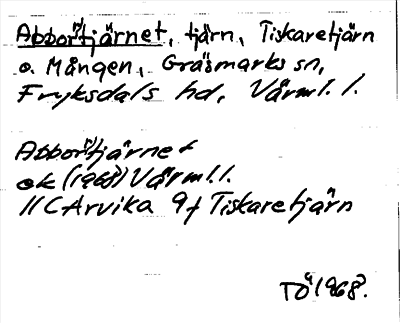 Abbor(r)tjärnet, tjärn, Tiskaretjärn
o. Mången, Gräsmarks sn,
Fryksdals hd, Värml. l.
Abbor(r)tjärnet
ek (1968) Värml. l.
11C Arvika 9f Tiskaretjärn
TÖ 1968.